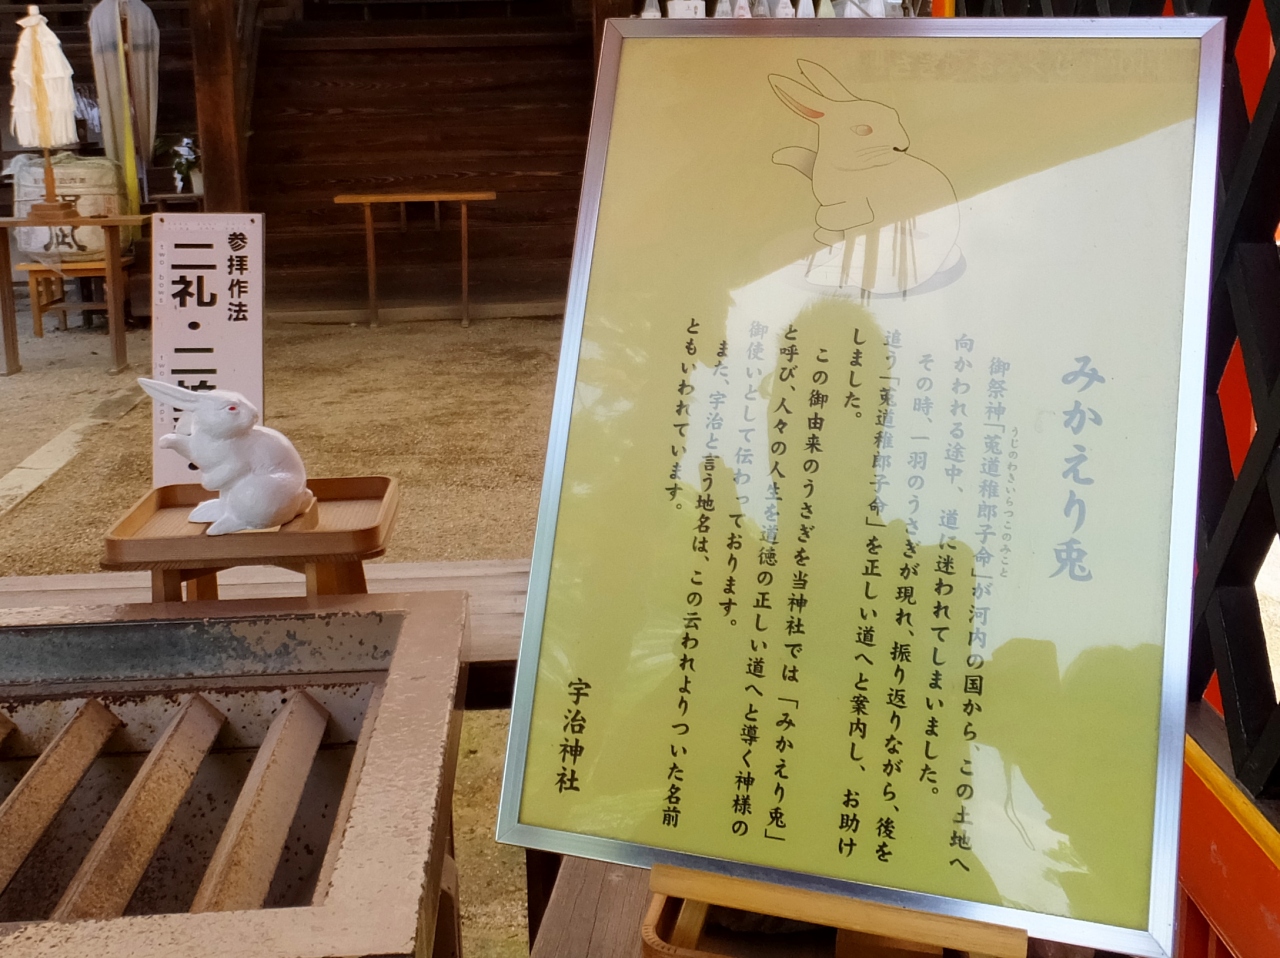 みかえり兎
御祭神「菟道稚郎子命」が河内の国から、この土地へ
うじのわきいらつこのみこと
向かわれる途中、道に迷われてしまいました。
その時、一羽のうさぎが現れ、振り返りながら、後を
追う「菟道稚郎子命」を正しい道へと案内し、お助け
しました。
この御由来のうさぎを当神社では「みかえり兎」
と呼び、人々の人生を道徳の正しい道へと導く神様の
御使いとして伝わっております。
また、宇治と言う地名は、この云われよりついた名前
ともいわれています。
宇治神社
参拝作法
二礼・二
two bows